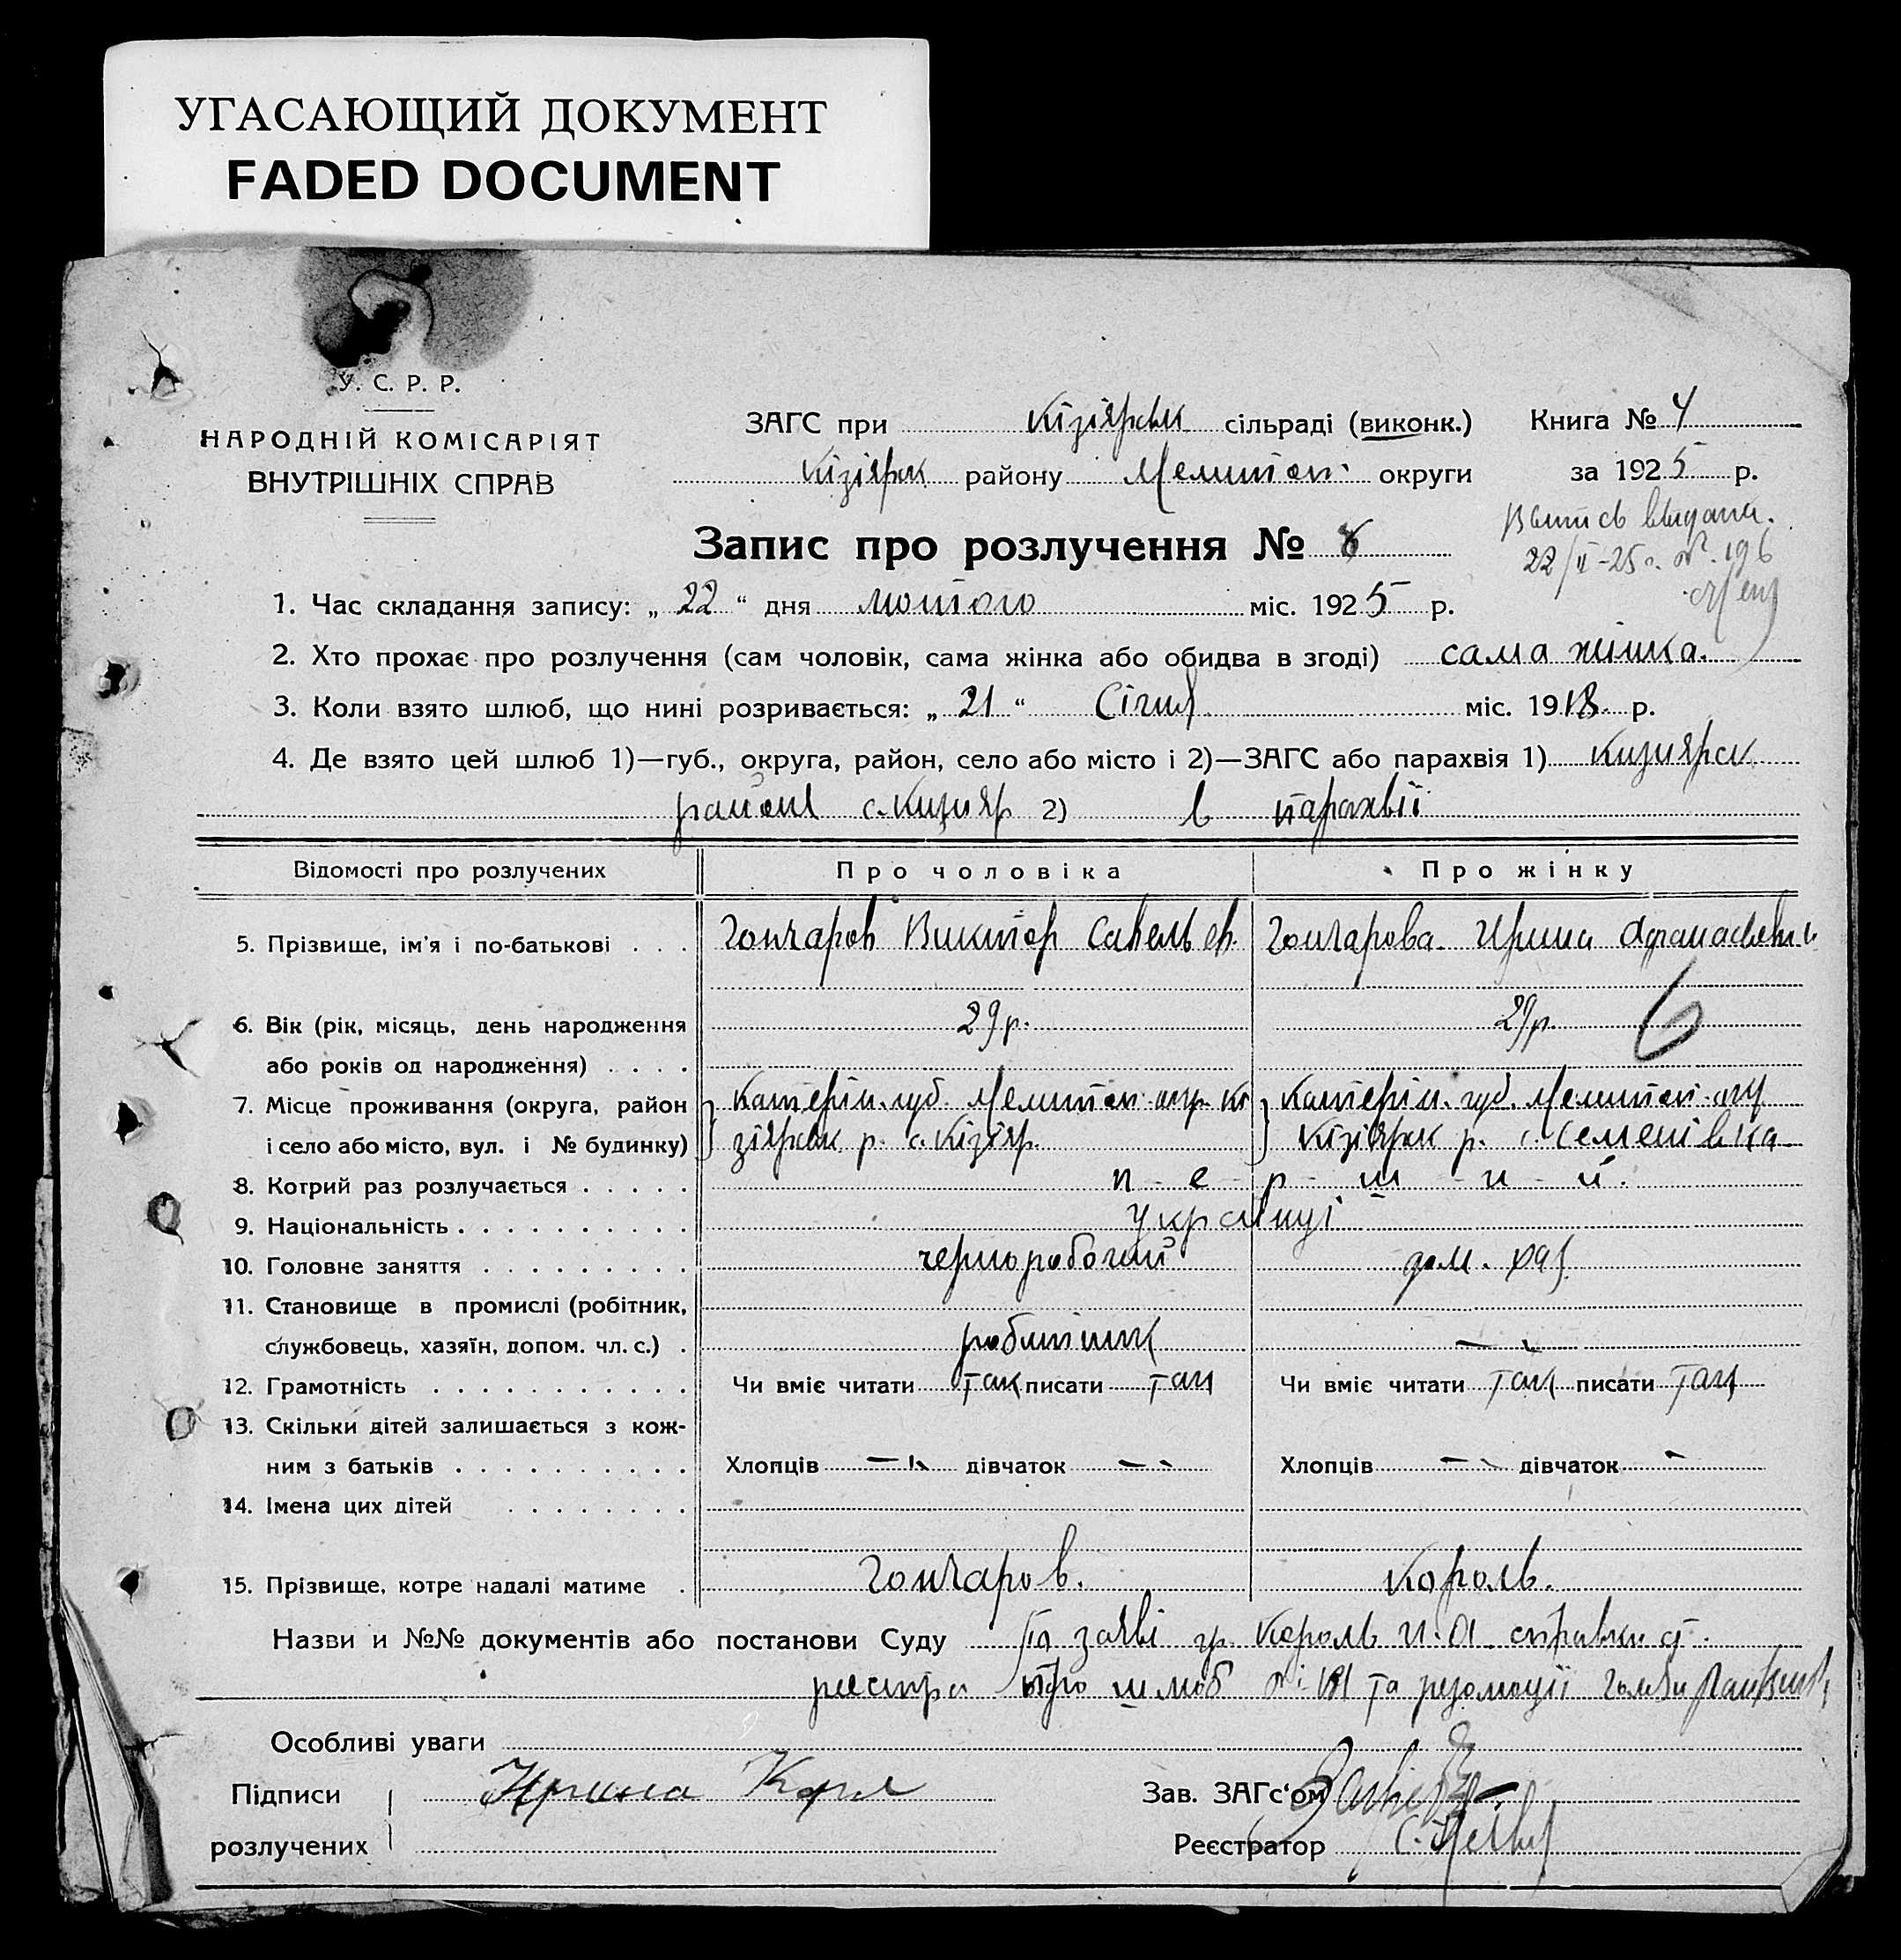 УГАСАЮЩИЙ ДОКУМЕНТ
FADED DOCUMENT
У. С. Р. Р.
НАРОДНІЙ КОМІСАРІЯТ
ВНУТРІШНІХ СПРАВ
ЗАГС при Кізіярськ сільраді (виконк.)
Кізіярськ району Мелитоп. округи
Книга № 4
за 1925 р.
Запис про розлучення №
выдана.
22/II-25 г. № 196
1. Час складання запису: „ 22 “ дня лютого міс. 1925 р.
2. Хто прохає про розлучення (сам чоловік, сама жінка або обидва в згоді) сама жінка.
3. Коли взято шлюб, що нині розривається: „ 21 “ Січня міс. 1918 р.
4. Де взято цей шлюб 1)—губ., округа, район, село або місто і 2)—ЗАГС або парахвія 1) Кизиярск
районі с. Кизияр 2) в парахвії
Відомості про розлучених Про чоловіка Про жінку
5. Прізвище, ім'я і по-батькові . . . Гончаров Виктор Савельев. Гончарова Ирина
6. Вік (рік, місяць, день народження 29 р. 29 р. 6
або років од народження) . . . .
7. Місце проживання (округа, район Катерін. губ. Мелитоп. окр. Кі Катерін. губ. Мелитоп. окр
і село або місто, вул. і № будинку) зіярськ р. с. Кізіяр. Кізіярськ р. с. Семенівка
8. Котрий раз розлучається . . . . . п-е-р-ш-и-й.
9. Національність . . . . . . . . . . українці
10. Головне заняття . . . . . . . . . чернорабочий дом. хаз.
11. Становище в промислі (робітник,
службовець, хазяїн, допом. чл. с.) . робітник —
12. Грамотність . . . . . . . . . . . Чи вміє читати так писати так Чи вміє читати так писати так
13. Скільки дітей залишається з кож-
ним з батьків . . . . . . . . . . Хлопців — дівчаток — Хлопців — дівчаток —
14. Імена цих дітей . . . . . . . .
15. Прізвище, котре надалі матиме . Гончаров. Король.
Назви и №№ документів або постанови Суду По заяві гр. Король И. А.
про шлюб та резолюції
Особливі уваги
Підписи Ирина Зав. ЗАГс‘ом
розлучених Реєстратор